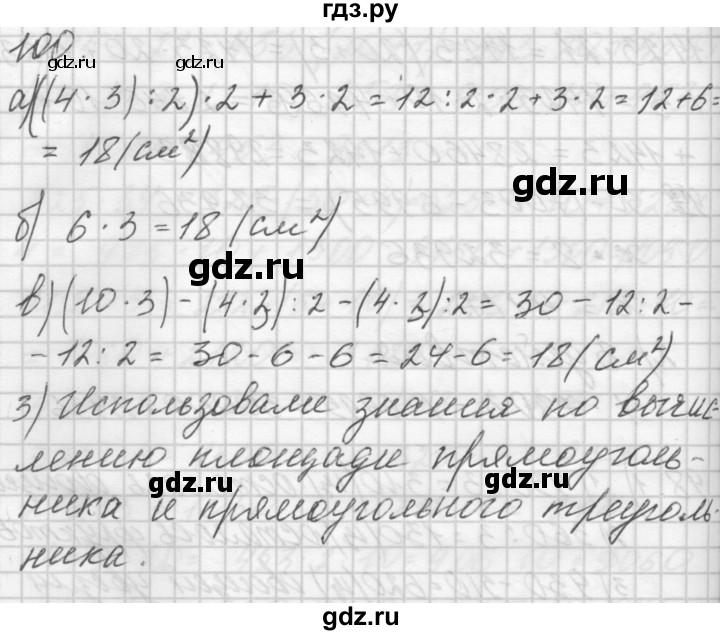 гдз.ру
100
gdz.ru gdz.ru
а) ((4 · 3) : 2) · 2 + 3 · 2 = 12 : 2 · 2 + 3 · 2 = 12 + 6 =
= 18 (см²)
gdz.ru
б) 6 · 3 = 18 (см²)
gdz.ru
в) (10 · 3) - (4 · 3) : 2 - (4 · 3) : 2 = 30 - 12 : 2 -
- 12 : 2 = 30 - 6 - 6 = 24 - 6 = 18 (см²)
3) Использовали знания по вычис-
лению площади прямоуголь-
gdz.ru gdz.ru
ника и прямоугольного треуголь-
ника.
gdz.ru